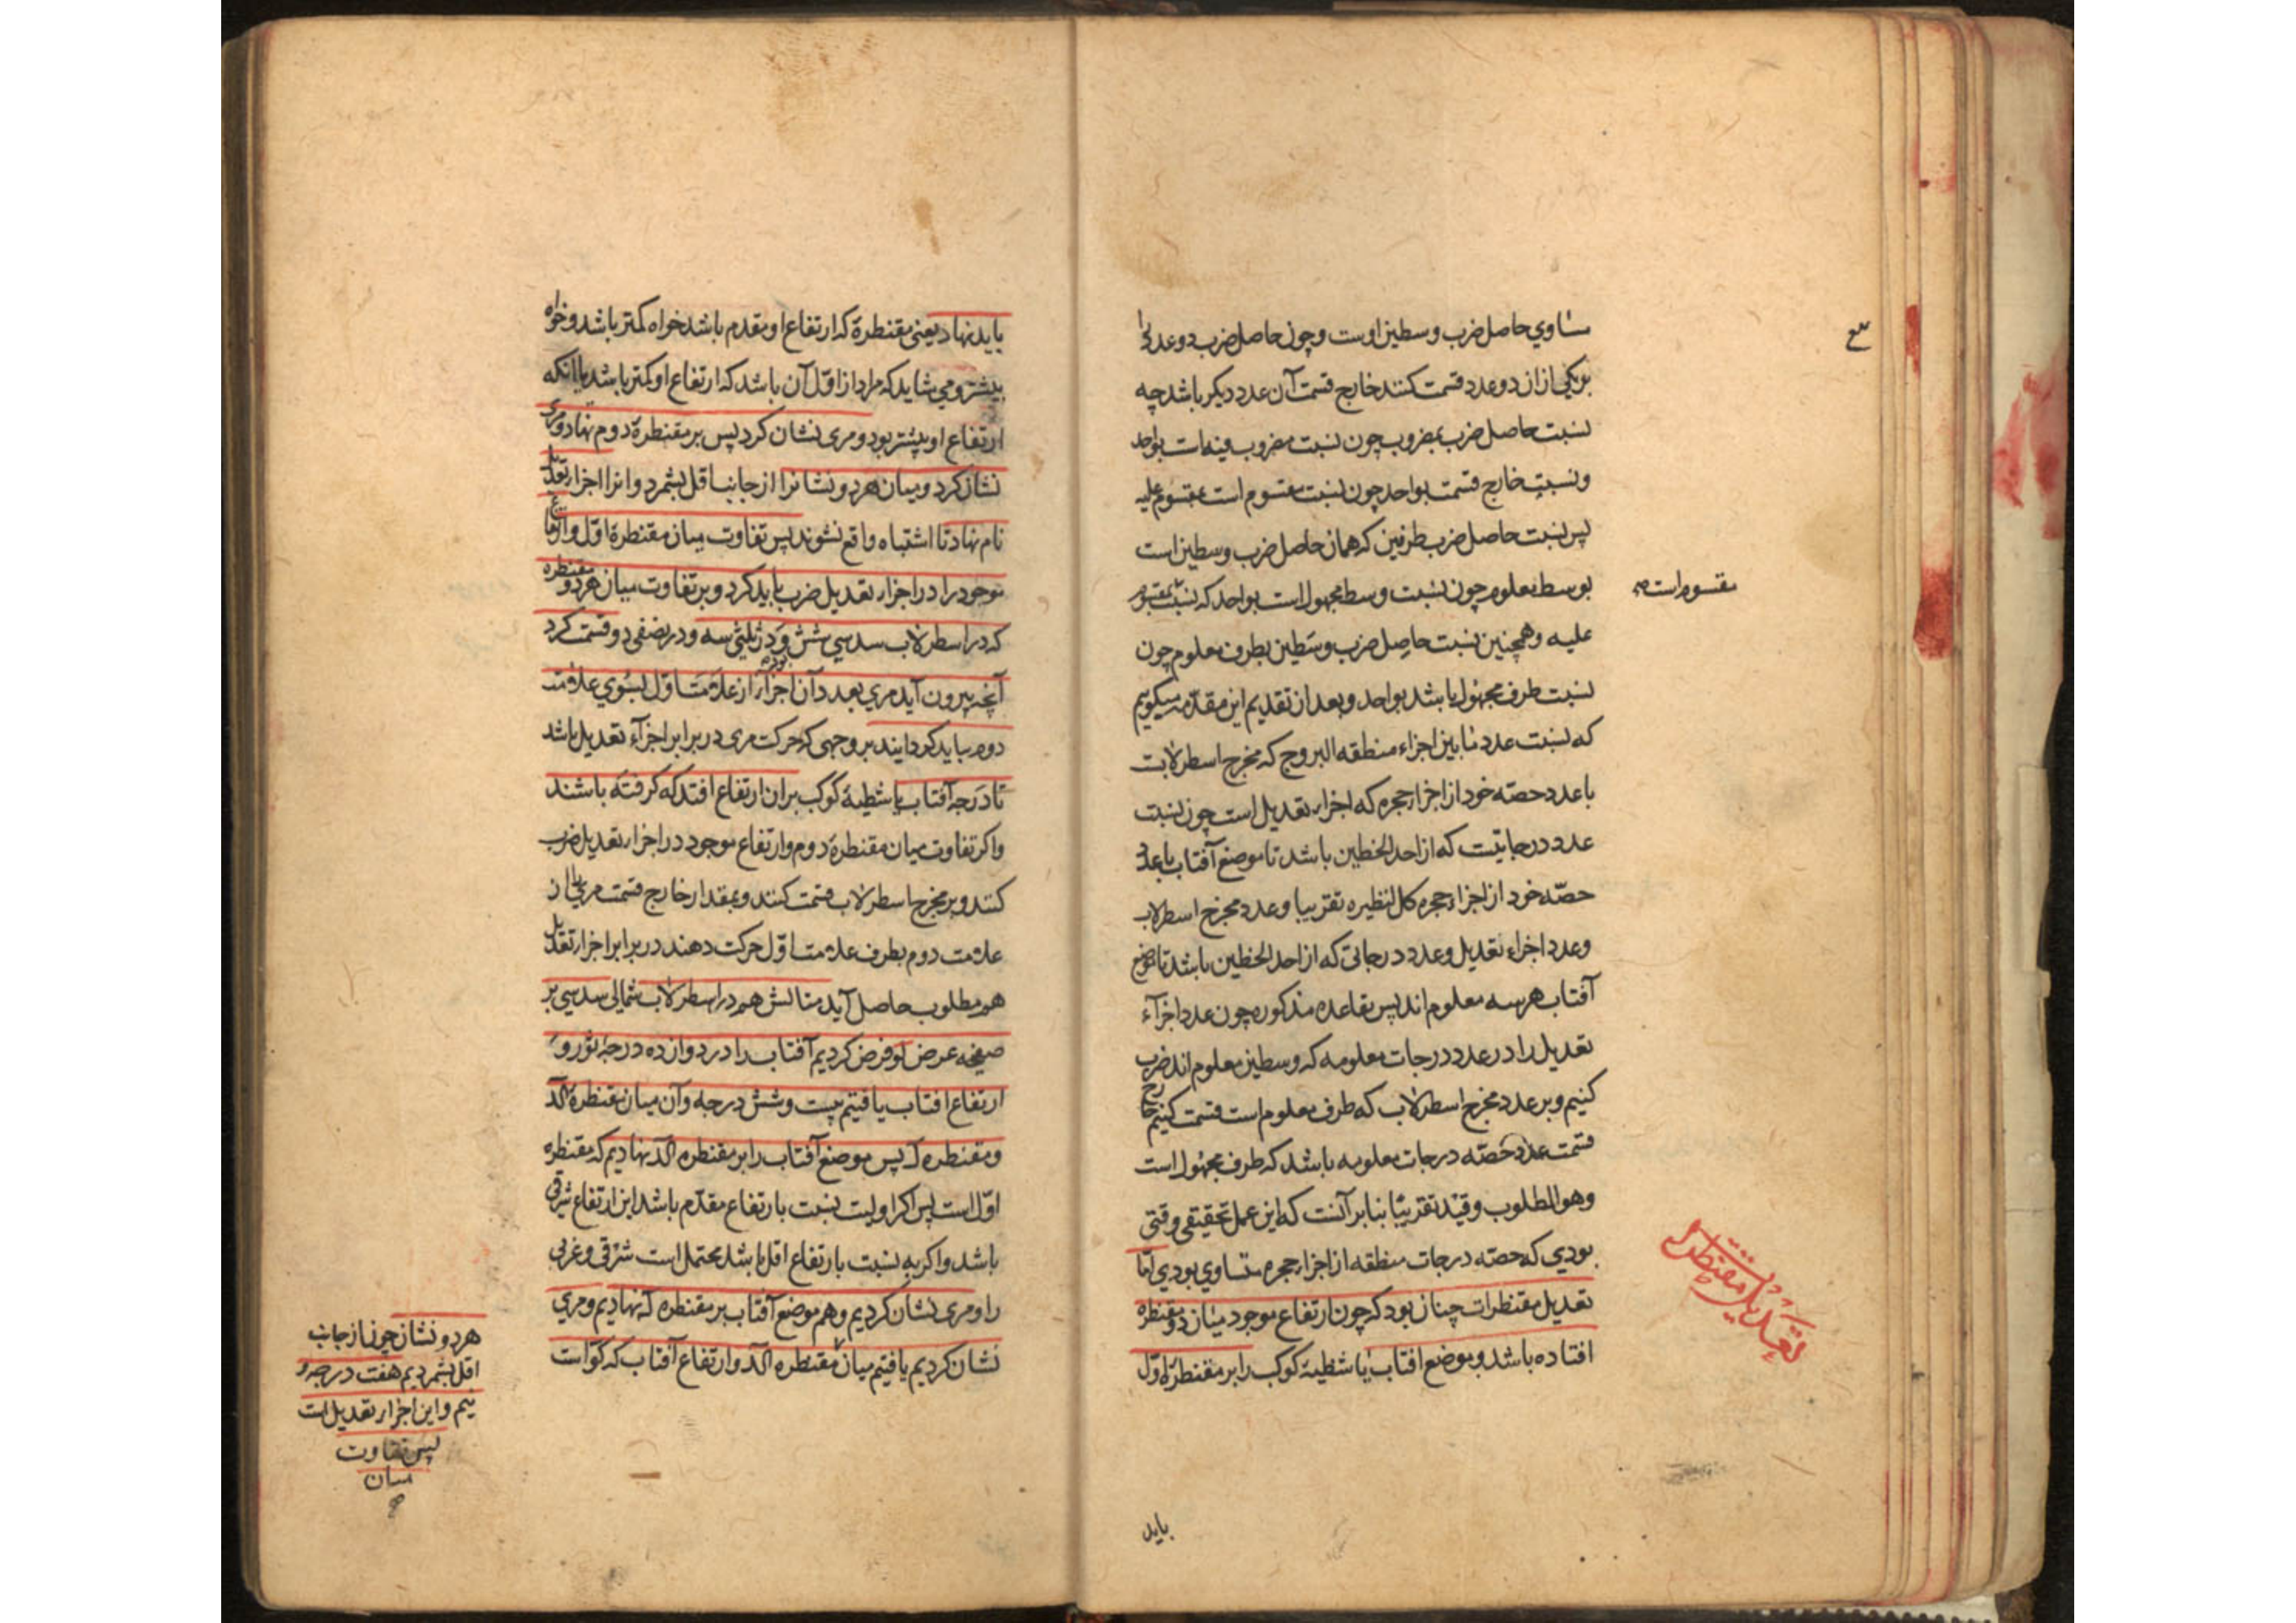 مساوي حاصل ضرب وسطين اوست وچون حاصل ضرب دو عدد را
بر يكى ازان دو عدد قسمت كنند خارج قسمت آن عدد ديكر باشد چه
نسبت حاصل ضرب بمضروب چون نسبت مضروب فيه است بواحد
ونسبت خارج قسمت بواحد چون نسبت مقسوم است بمقسوم عليه
پس نسبت حاصل ضرب طرفين كه همان حاصل ضرب وسطين است
بوسط معلوم چون نسبت وسط مجهول است بواحد كه نسبت مقسوم
مقسوم است
عليه وهمچنين نسبت حاصل ضرب وسطين بطرف معلوم چون
نسبت طرف مجهول باشد بواحد وبعد از تقديم اين مقدمه ميكويم
كه نسبت عدد مابين اجزاء منطقه البروج كه مخرج اسطرلابست
با عدد حصه خود از اجزاء حجره كه اجزاء تعديل است چون نسبت
عدد درجاتيست كه از احد الخطين باشد تا موضع آفتاب با عدد
حصه خود از اجزاء حجره كل لنظيره تقريبا وعدد مخرج اسطرلاب
وعدد اجزاء تعديل وعدد درجاتى كه از احد الخطين باشد تا موضع
آفتاب هر سه معلوم اند پس بقاعده مذكوره چون عدد اجزآء
تعديل را در عدد درجات معلومه كه وسطين معلوم اند ضرب
كنيم وبر عدد مخرج اسطرلاب كه طرف معلوم است قسمت كنيم خارج
قسمت عدد حصه درجات معلومه باشد كه طرف مجهول است
وهو المطلوب وقيد تقريبا بنا بر آنست كه اين عمل تحقيقى وقتى
بودي كه حصه درجات منطقه از اجزاء حجره متساوي بودي اما
تعديل مقنطرات
تعديل مقنطرات چنان بود كه چون ارتفاع موجود ميان دو مقنطره
افتاده باشد وموضع افتاب يا شطيه كوكب را بر مقنطره اول
بايد
بايد نهاد يعنى مقنطرة كه ارتفاع او مقدم باشد خواه كمتر باشد وخواه
بيشتر ومي شايد كه مراد از اول آن باشد كه ارتفاع او كمتر باشد با آنكه
ارتفاع او بيشتر بود ومرى نشان كرد پس بر مقنطرة دوم نهاد ومرى
نشان كرد وميان هر دو نشانرا از جانب اقل بشمرد وانرا اجزاء تعديل
نام نهاد تا اشتباه واقع نشود پس تفاوت ميان مقنطرة اول وارتفاع
موجود را در اجزاء تعديل ضرب بايد كرد وبر تفاوت ميان هر دو مقنطره
كه در اسطرلاب سدسي شش ودر ثلثي سه ودر نصفى دو قسمت كرد
آنچه بيرون آيد مري بعدد آن اجزاء از علامت اول بسوي علامت
دوم ببايد كردانيد بر وجهى كه حركت مرى در برابر اجزآء تعديل باشد
تا درجه آفتاب يا شطيه كوكب بران ارتفاع افتد كه كرفته باشند
واكر تفاوت ميان مقنطرة دوم وارتفاع موجود در اجزاء تعديل ضرب
كنند وبر مخرج اسطرلاب قسمت كنند وبمقدار خارج قسمت مري را از
علامت دوم بطرف علامت اول حركت دهند در برابر اجزاء تعديل
هم مطلوب حاصل آيد مثالش هم در اسطرلاب شمالى سدسي بر
صفيحه عرض لو فرض كرديم آفتاب را در دوازده درجه ثور و
ارتفاع افتاب يافتيم بيست وشش درجه وآن ميان مقنطرة كد
ومقنطره ل پس موضع آفتاب را بر مقنطره كد نهاديم كه مقنطره
اول است پس اكر اوليت نسبت بارتفاع مقدم باشد اين ارتفاع شرقى
باشد واكر به نسبت بارتفاع اقل باشد محتمل است شرقى وغربى
را ومرى نشان كرديم وهم موضع آفتاب بر مقنطره ل نهاديم ومري
نشان كرديم يافتيم ميان مقنطره كد وارتفاع آفتاب كه كو است
هر دو نشان چون از جانب
اقل بشمرديم هفت درجه و
نيم واين اجزاء تعديل است
پس تفاوت
ميان